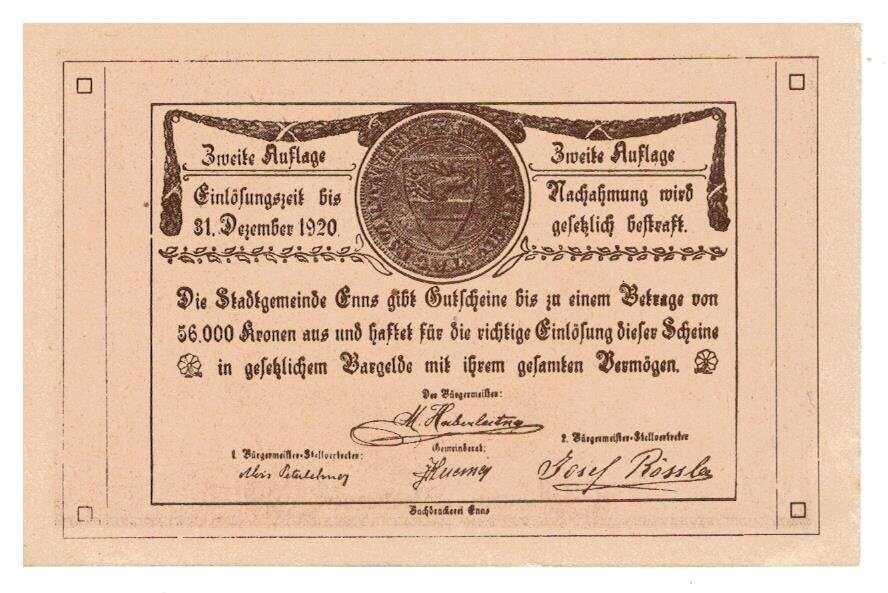 Zweite Auflage
Einlösungszeit bis
31. Dezember 1920.
Zweite Auflage
Nachahmung wird
gesetzlich bestraft.
Die Stadtgemeinde Enns gibt Gutscheine bis zu einem Betrage von
56.000 Kronen aus und haftet für die richtige Einlösung dieser Scheine
in gesetzlichem Bargelde mit ihrem gesamten Vermögen.
Der Bürgermeister:
M. Haberleitner
1. Bürgermeister-Stellvertreter:
Gemeinderat:
2. Bürgermeister-Stellvertreter
Josef Rössler
Buchdruckerei Enns